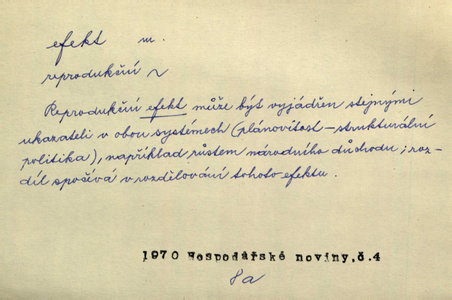 efekt m.
reprodukční ~
Reprodukční efekt může být vyjádřen stejnými
ukazateli v obou systémech (plánovitost – strukturální
politika), například růstem národního důchodu; roz-
díl spočívá v rozdělování tohoto efektu.
1970 Hospodářské noviny,č.4
8a